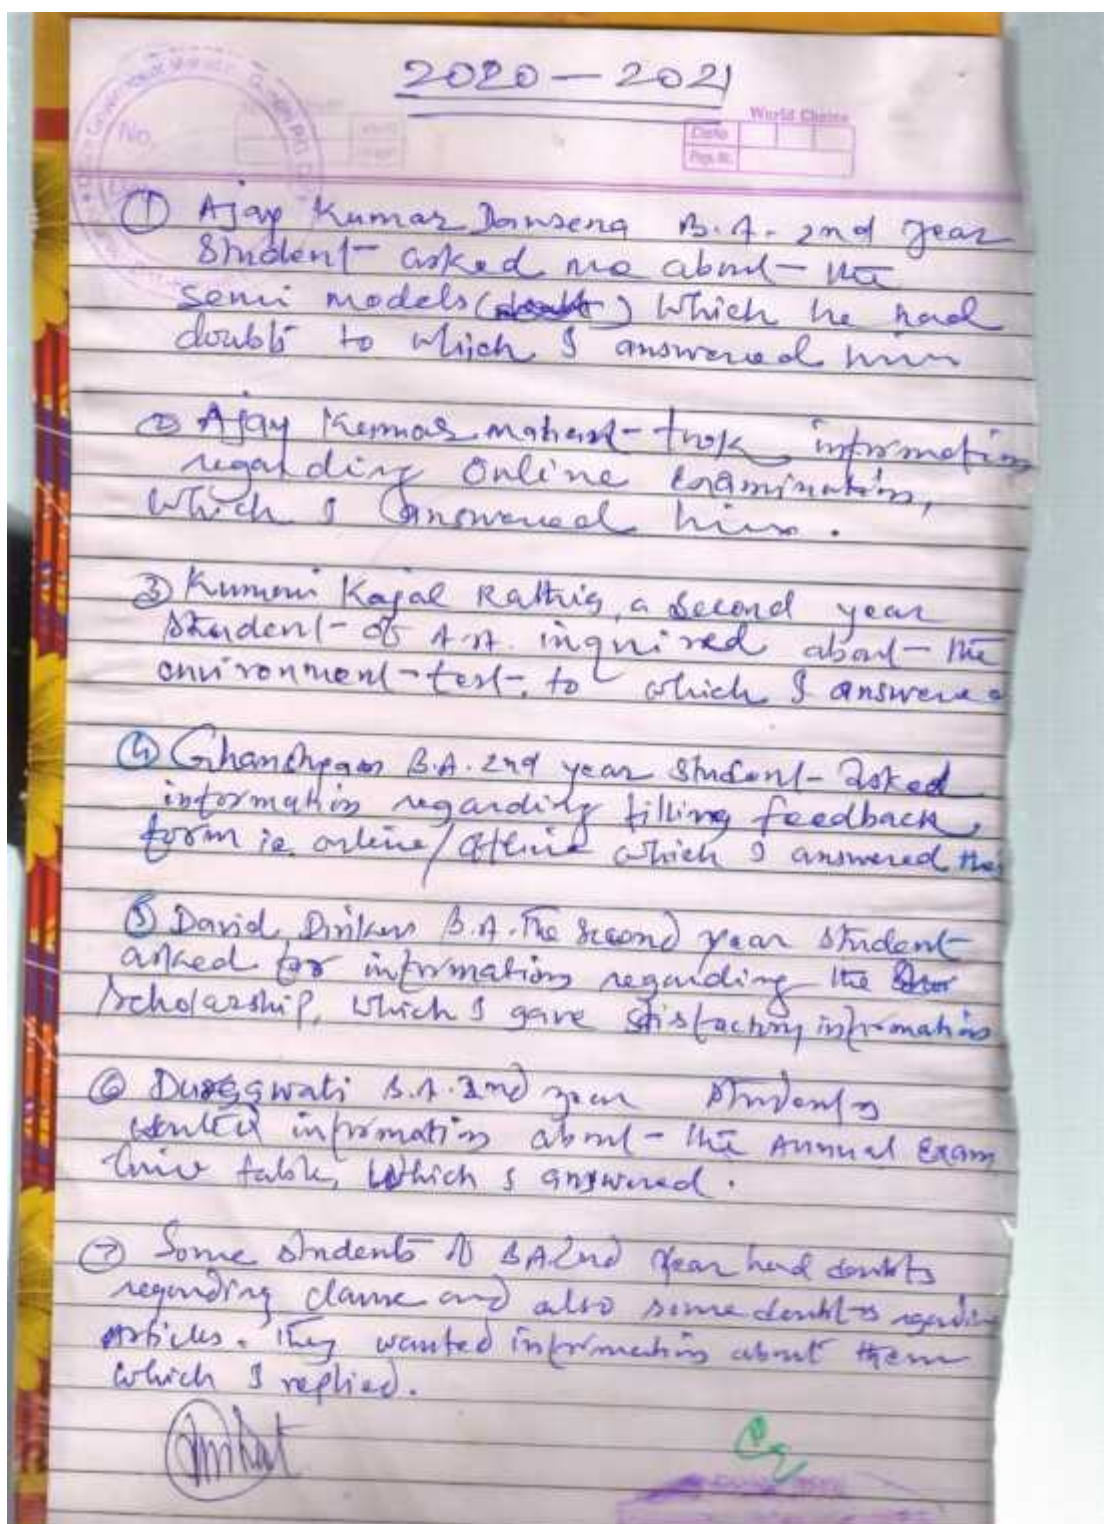 2020-2021
World Choice
Date
Page No.
No.
① Ajay Kumar Dansena B.A. 2nd year
Student asked me about the
semi models ( ) which he had
doubt to which I answered him
② Ajay Kumar mahant took information
regarding Online Examination,
which I answered him.
③ Kumari Kajal Rathia, a second year
student of A.A. inquired about the
environment test, to which I answere
④ Ghanshyam B.A. 2nd year student asked
information regarding filling feedback
form ie online/offline which I answered the
⑤ David Dinkar B.A. The second year student
asked for information regarding the
Scholarship, which I gave stisfactory information
⑥ B.A. 2nd year students
wanted information about the Annual Exam
time table, which I answered.
⑦ Some students of BA 2nd year had doubts
regarding clause and also some doubts regardin
Articles. They wanted information about them
which I replied.